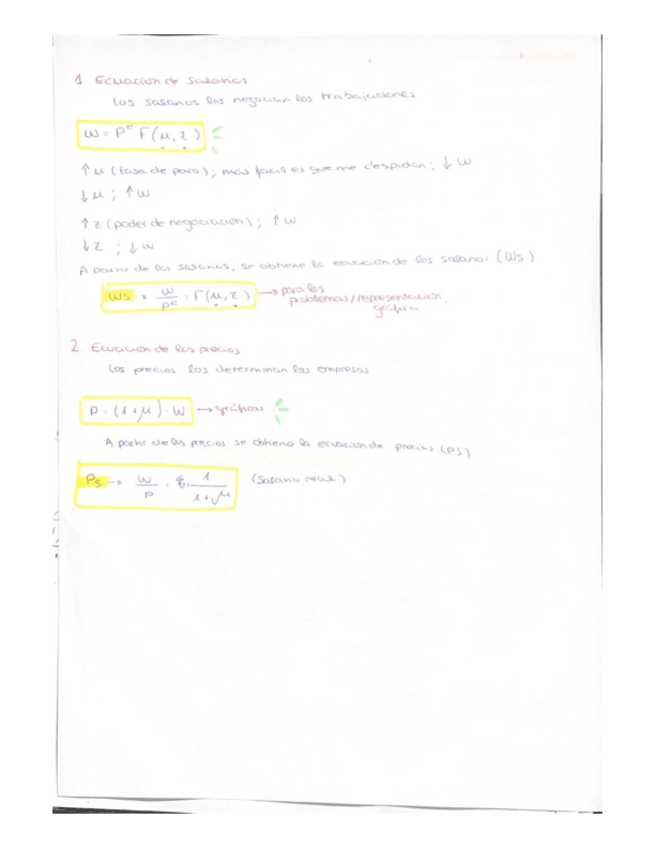 1. Ecuación de Salarios
Los salarios los negocian los trabajadores
W = Pᵉ · F(μ, z)
↑ μ (tasa de paro); más fácil es que me despidan; ↓ W
↓ μ ; ↑ W
↑ z (poder de negociación); ↑ W
↓ z ; ↓ W
A partir de los salarios, se obtiene la ecuación de los salarios (WS)
WS → W/Pᵉ = F(μ, z) → para los problemas/representación gráfica.
2. Ecuación de los precios
Los precios los determinan las empresas
P = (1+μ) · W → gráficos
A partir de los precios se obtiene la ecuación de precios (PS)
PS → W/P = 1/1+μ (Salario real)